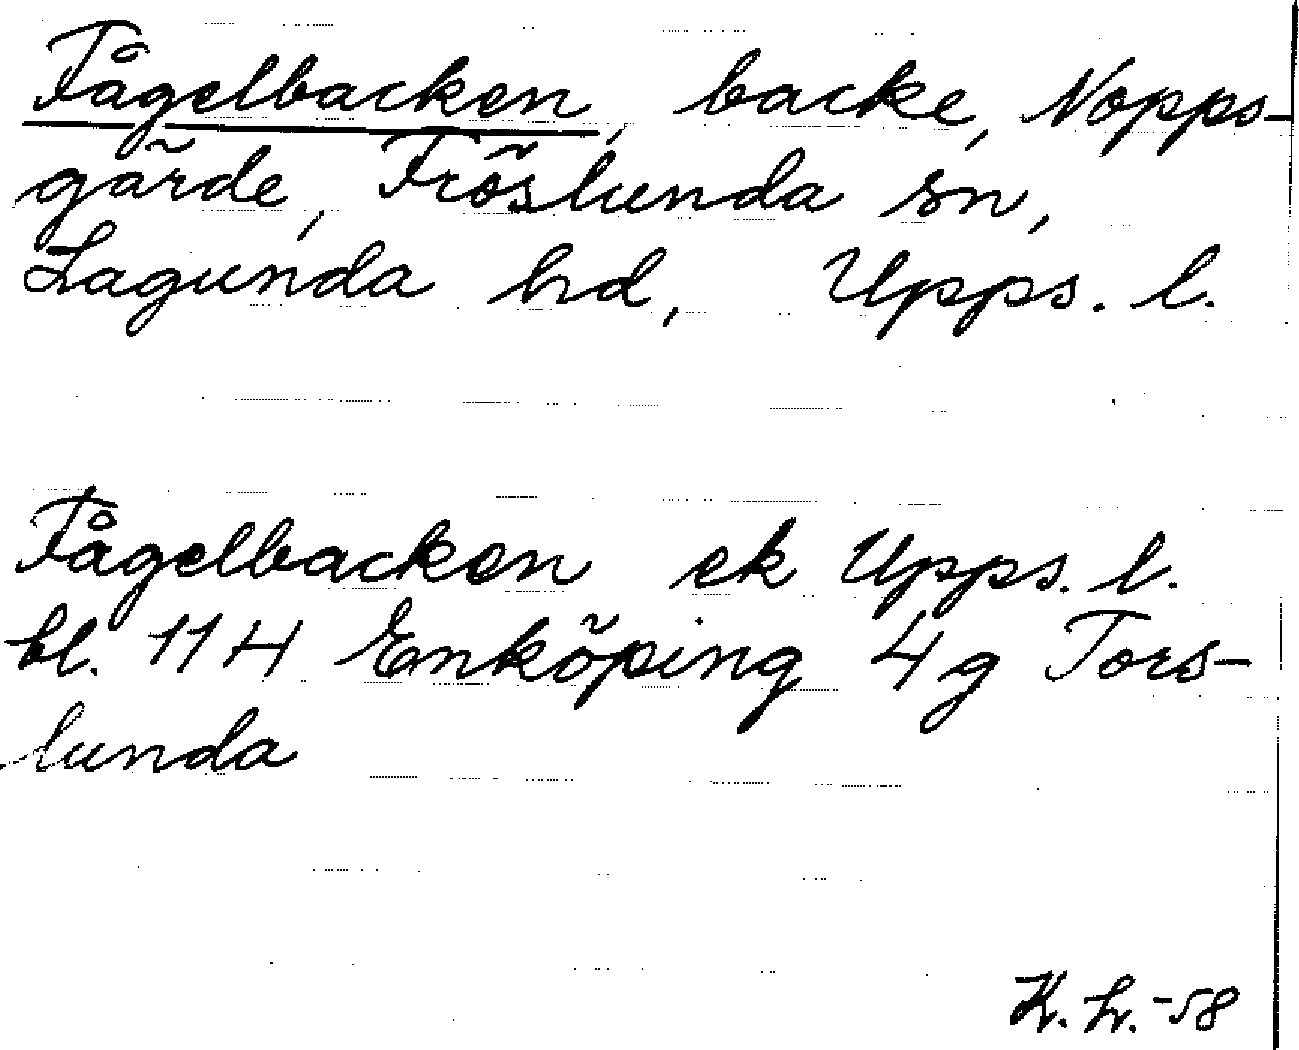 Fågelbacken, backe, Nopps-
gärde, Fröslunda sn,
Lagunda hd, Upps. l.
Fågelbacken ek Upps. l.
bl. 11 H Enköping 4 g Tors-
lunda
K. L. -58